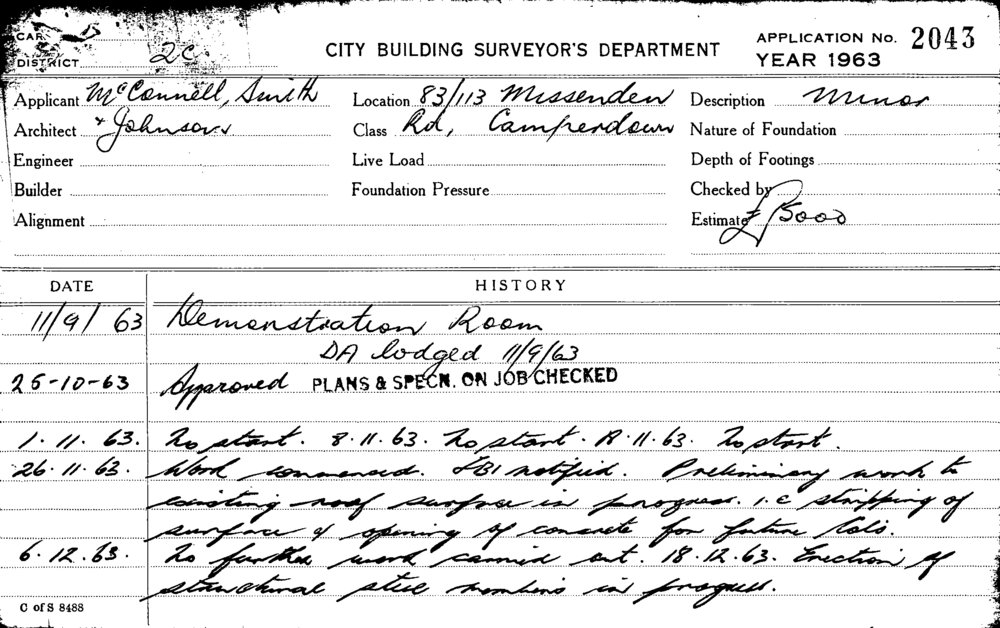 CAR D
DISTRICT 2c.
CITY BUILDING SURVEYOR'S DEPARTMENT
APPLICATION No. 2043
YEAR 1963
Applicant McConnell, Smith Location 83/113 Missenden Description Minor
Architect + Johnson Class Rd, Camperdown Nature of Foundation
Engineer Live Load Depth of Footings
Builder Foundation Pressure Checked by
Alignment Estimate £ 5000
DATE HISTORY
11/9/63 Demonstration Room
DA lodged 11/9/63
25-10-63 Approved PLANS & SPECN. ON JOB CHECKED
1.11.63. No start. 8.11.63. No start. 18.11.63. No start.
26.11.63. Work commenced. notified. Preliminary work to
existing roof surface in progress. i.e stripping of
surface & opening of concrete for future cols.
6.12.63. No further work carried out. 18.12.63. Erection of
structural steel members in progress.
C of S 8488